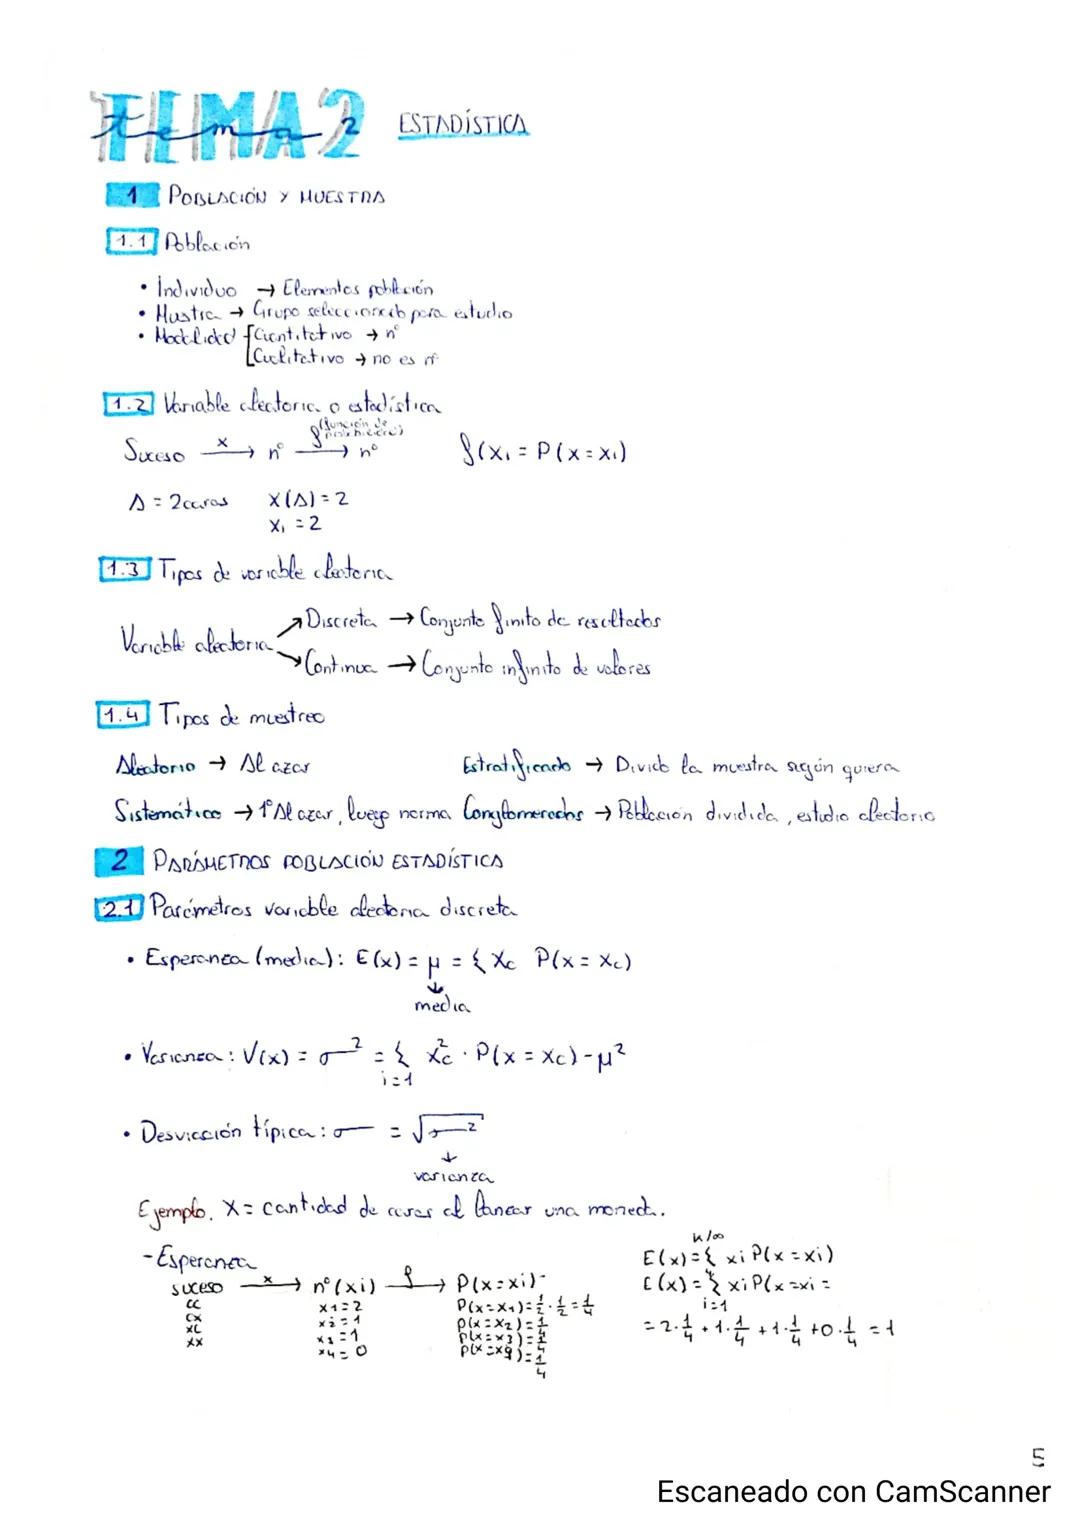 TEMA 2
tema 2
ESTADÍSTICA
1 POBLACIÓN Y MUESTRA
1.1 Población
• Individuo → Elementos población
• Mustra → Grupo seleccionado para estudio
• Modalidad [Cuantitativo → nº
[Cualitativo → no es nº
1.2 Variable aleatoria o estadística
Suceso x→ nº f (función de probabilidad)→ nº f(x₁ = P(x = x₁)
A = 2 caras X(A) = 2
X₁ = 2
1.3 Tipos de variable aleatoria
Variable aleatoria
↗ Discreta → Conjunto finito de resultados
↘ Continua → Conjunto infinito de valores
1.4 Tipos de muestreo
Aleatorio → Al azar Estratificado → Divido la muestra según quiera
Sistemático → 1º Al azar, luego norma Conglomerados → Población dividida, estudio aleatorio
2 PARÁMETROS POBLACIÓN ESTADÍSTICA
2.1 Parámetros variable aleatoria discreta
• Esperanza (media): E(x) = μ = ξ Xc P(x = Xc)
↓
media
• Varianza: V(x) = σ² = ξ x²c · P(x = xc) - μ²
i=1
• Desviación típica: σ = √σ²
↓
varianza
Ejemplo. X = cantidad de caras al lanzar una moneda.
- Esperanza
suceso x→ nº (xi) f→ P(x=xi)
CC x1=2 P(x=x1)=1/2·1/2=1/4
CX x2=1 P(x=x2)=1/4
XC x3=1 P(x=x3)=1/4
XX x4=0 P(x=x4)=1/4
n/∞
E(x)=ξ xi P(x=xi)
E(x)=ξ xi P(x=xi =
i=1
=2·1/4+1·1/4+1·1/4+0·1/4=1
5
Escaneado con CamScanner